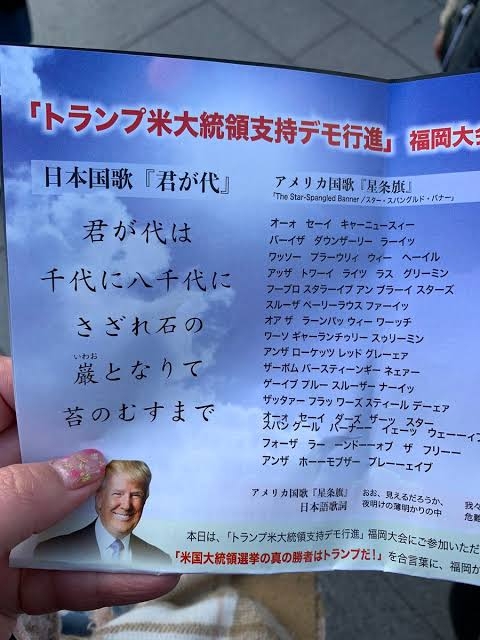 「トランプ米大統領支持デモ行進」 福岡大会
日本国歌『君が代』
君が代は
千代に八千代に
さざれ石の
いわお
巌となりて
苔のむすまで
アメリカ国歌『星条旗』
「The Star-Spangled Banner／スター・スパングルド・バナー」
オーォ セーイ キャーニュースィー
バーイザ ダウンザーリー ラーイッ
ワッソー プラーウリィ ウィー ヘーイル
アッザ トワーイ ライツ ラス グリーミン
フーブロ スタラーイプ アン ブラーイ スターズ
スルーザ ペーリーラウス ファーイッ
オア ザ ラーンパッ ウィー ワーッチ
ワーソ ギャーランチゥリー スゥリーミン
アンザ ローケッツ レッド グレーェア
ザーボム バースティーンギー ネェァー
ゲーイブ プルー スルーザー ナーイッ
ザッタァー フラッ ワーズ スティール デーェア
オーォ セーイ ダーズ ザーッ スター
スパンゲール バーナー イェーツ ウェーーイブ
フォーザ ラー ーンドーーオブ ザ フリーー
アンザ ホーーモブザー ブレーーェイブ
アメリカ国歌『星条旗』
日本語歌詞
おお、見えるだろうか、
夜明けの薄明かりの中
我々
危難
本日は、「トランプ米大統領支持デモ行進」福岡大会にご参加いただ
「米国大統領選挙の真の勝者はトランプだ!」を合言葉に、福岡か